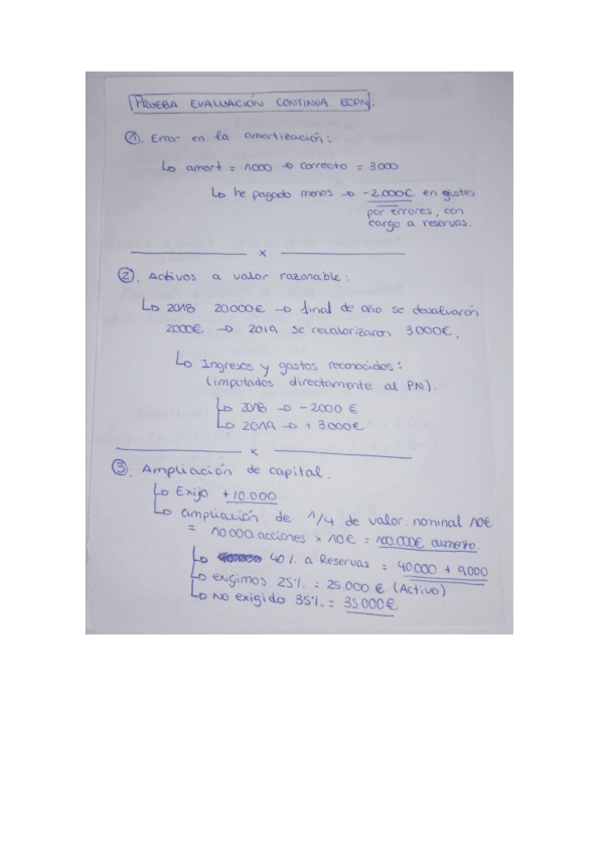 PRUEBA EVALUACIÓN CONTINUA ECPN.
①. Error en la amortización:
↳ amort = 1000 → correcto = 3000
↳ he pagado menos → -2.000€ en gastos
por errores, con
cargo a reservas.
x
②. Activos a valor razonable:
↳ 2018 20.000€ → final de año se devaluarón
2000€ → 2019 se revalorizaron 3.000€.
↳ Ingresos y gastos reconocidos:
(imputados directamente al PN).
↳ 2018 → -2000 €
↳ 2019 → +3000€
x
③. Ampliación de capital.
↳ Exijo +10.000
↳ ampliación de 1/4 de valor nominal 10€
= 10.000 acciones x 10€ = 100.000€ aumento.
↳ 40% a Reservas = 40.000 + 9.000
↳ exigimos 25% = 25.000 € (Activo)
↳ NO exigido 35% = 35.000€